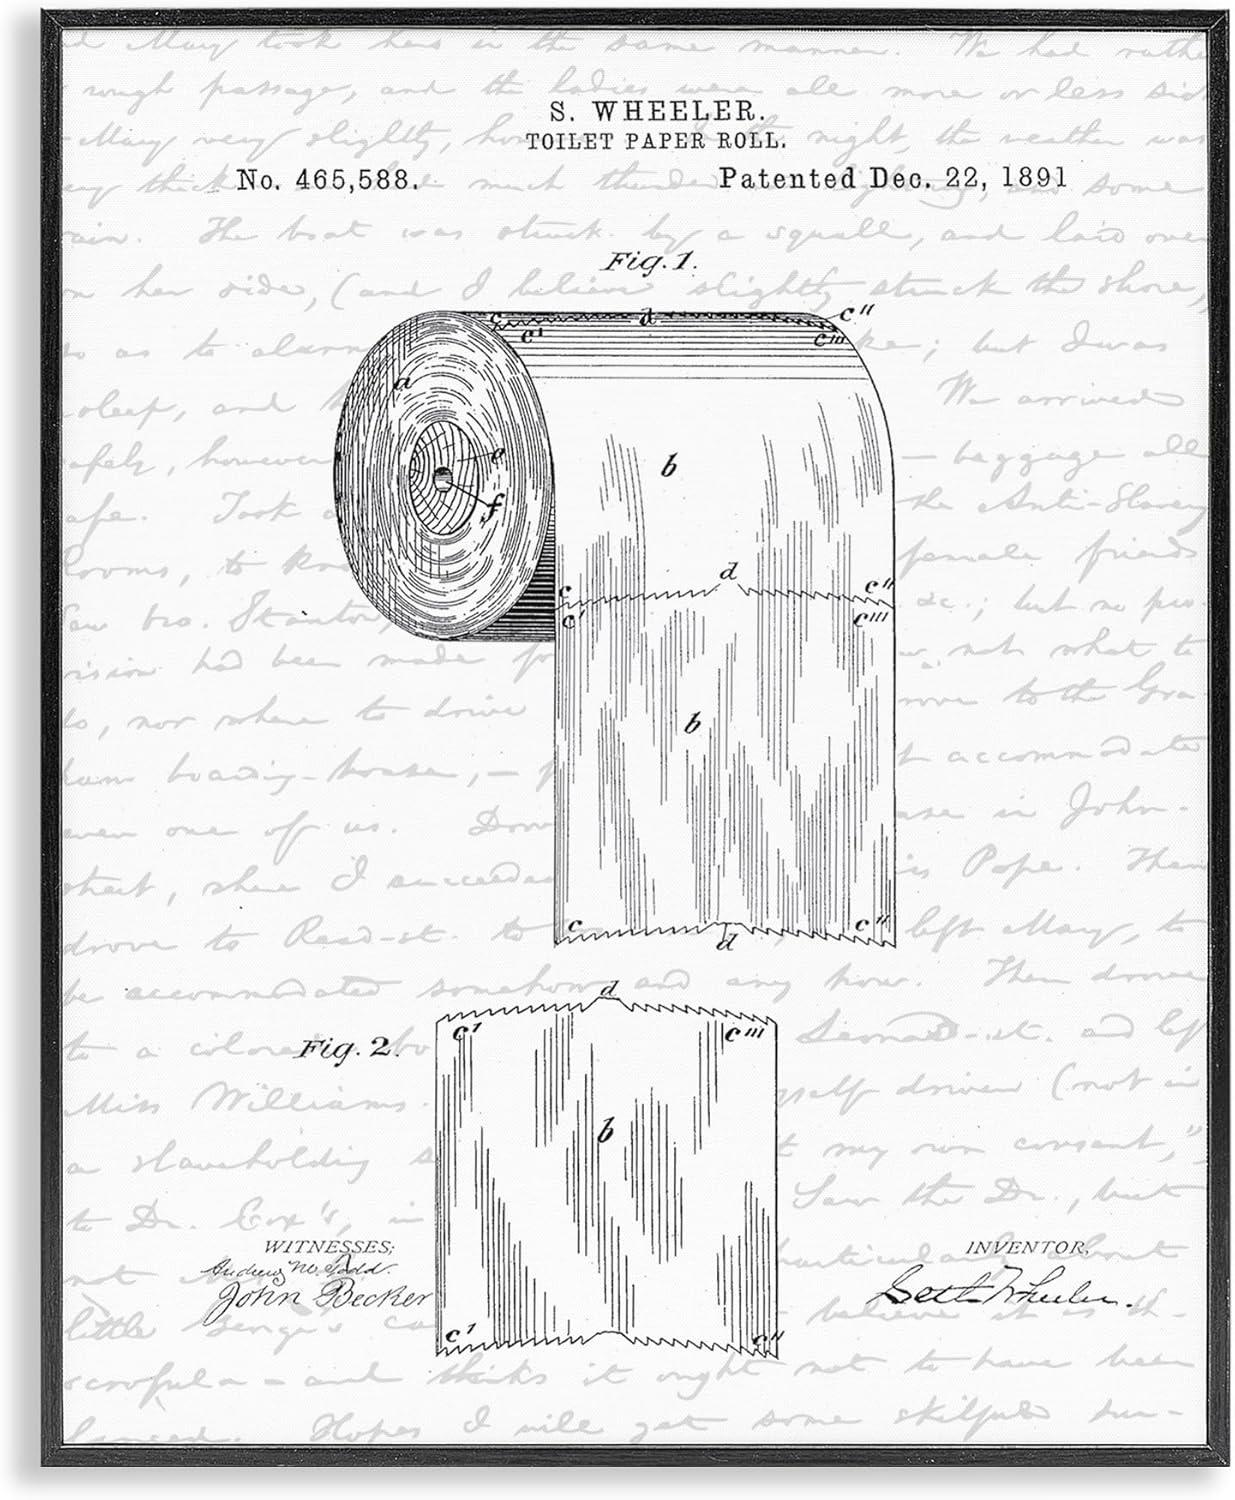 d May took hers in the same manner. We had rathe
rough passage, and the ladies were all more or less sick
May very slightly, how the night, the weather was
S. WHEELER.
TOILET PAPER ROLL.
No. 465,588. Patented Dec. 22, 1891
thick much thunder some
ain. The boat was struck by a squall, and laid over
on her side, (and I believe slightly struck the shore,
Fig. 1.
c c' d c" c'''
so as to alarm ke; but I was
a
sleep, and We arrived
b
safely, however — baggage all
e
f
afe. Took the Anti-Slavery
rooms, to female friends
d
c c"
c' c'''
bro. Stanton, &c.; but no pro-
vision had been made not what to
do, nor where to drive rove to the Gra-
b
ham boarding-house, – accommodate
even one of us. in John-
street, where I succeeded is Pope. Then
c d c"
drove to Read-st. to left May, to
be accommodated somehow and any how. Then drove
d
c' c'''
Fig. 2.
to a colored bo Leonard-st. and left
Miss Williams. yself driven (not in
b
a slaveholding t my own consent,"
to Dr. Cox's, in Saw the Dr., but
WITNESSES: INVENTOR,
not particularly about
John Becker Seth Wheeler.
little George's believe it is th-
c' c"
scrofula – and thinks it ought not to have been
Hopes I will get some skilful